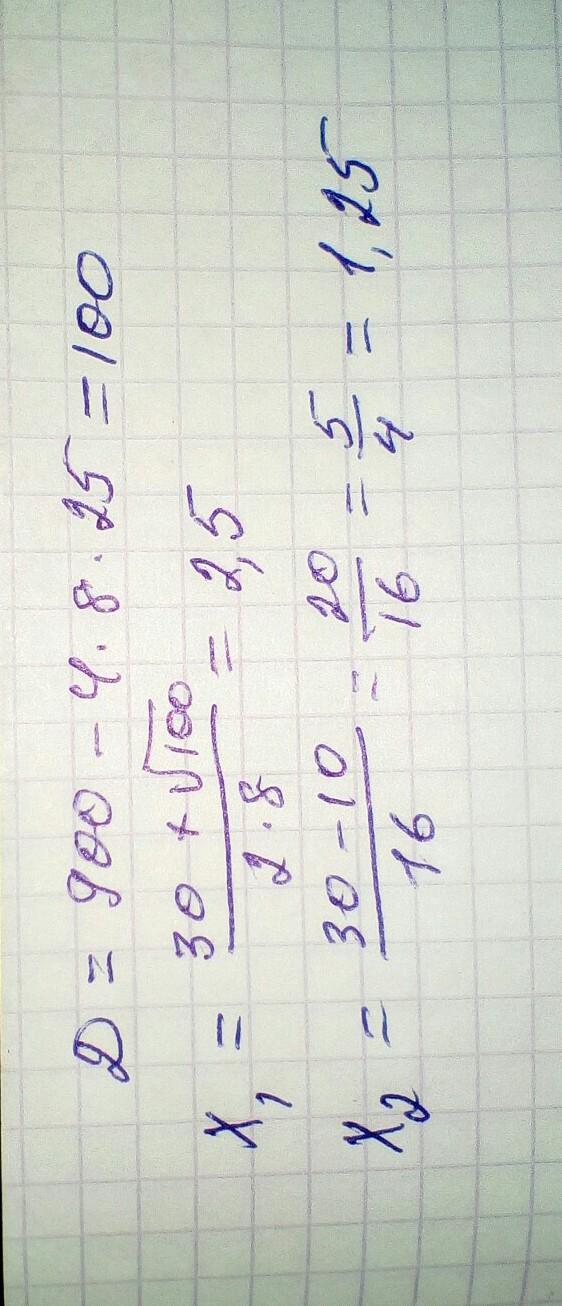 D = 900 - 4 · 8 · 25 = 100
x₁ = (30 + √100)/(2 · 8) = 2,5
x₂ = (30 - 10)/16 = 20/16 = 5/4 = 1,25